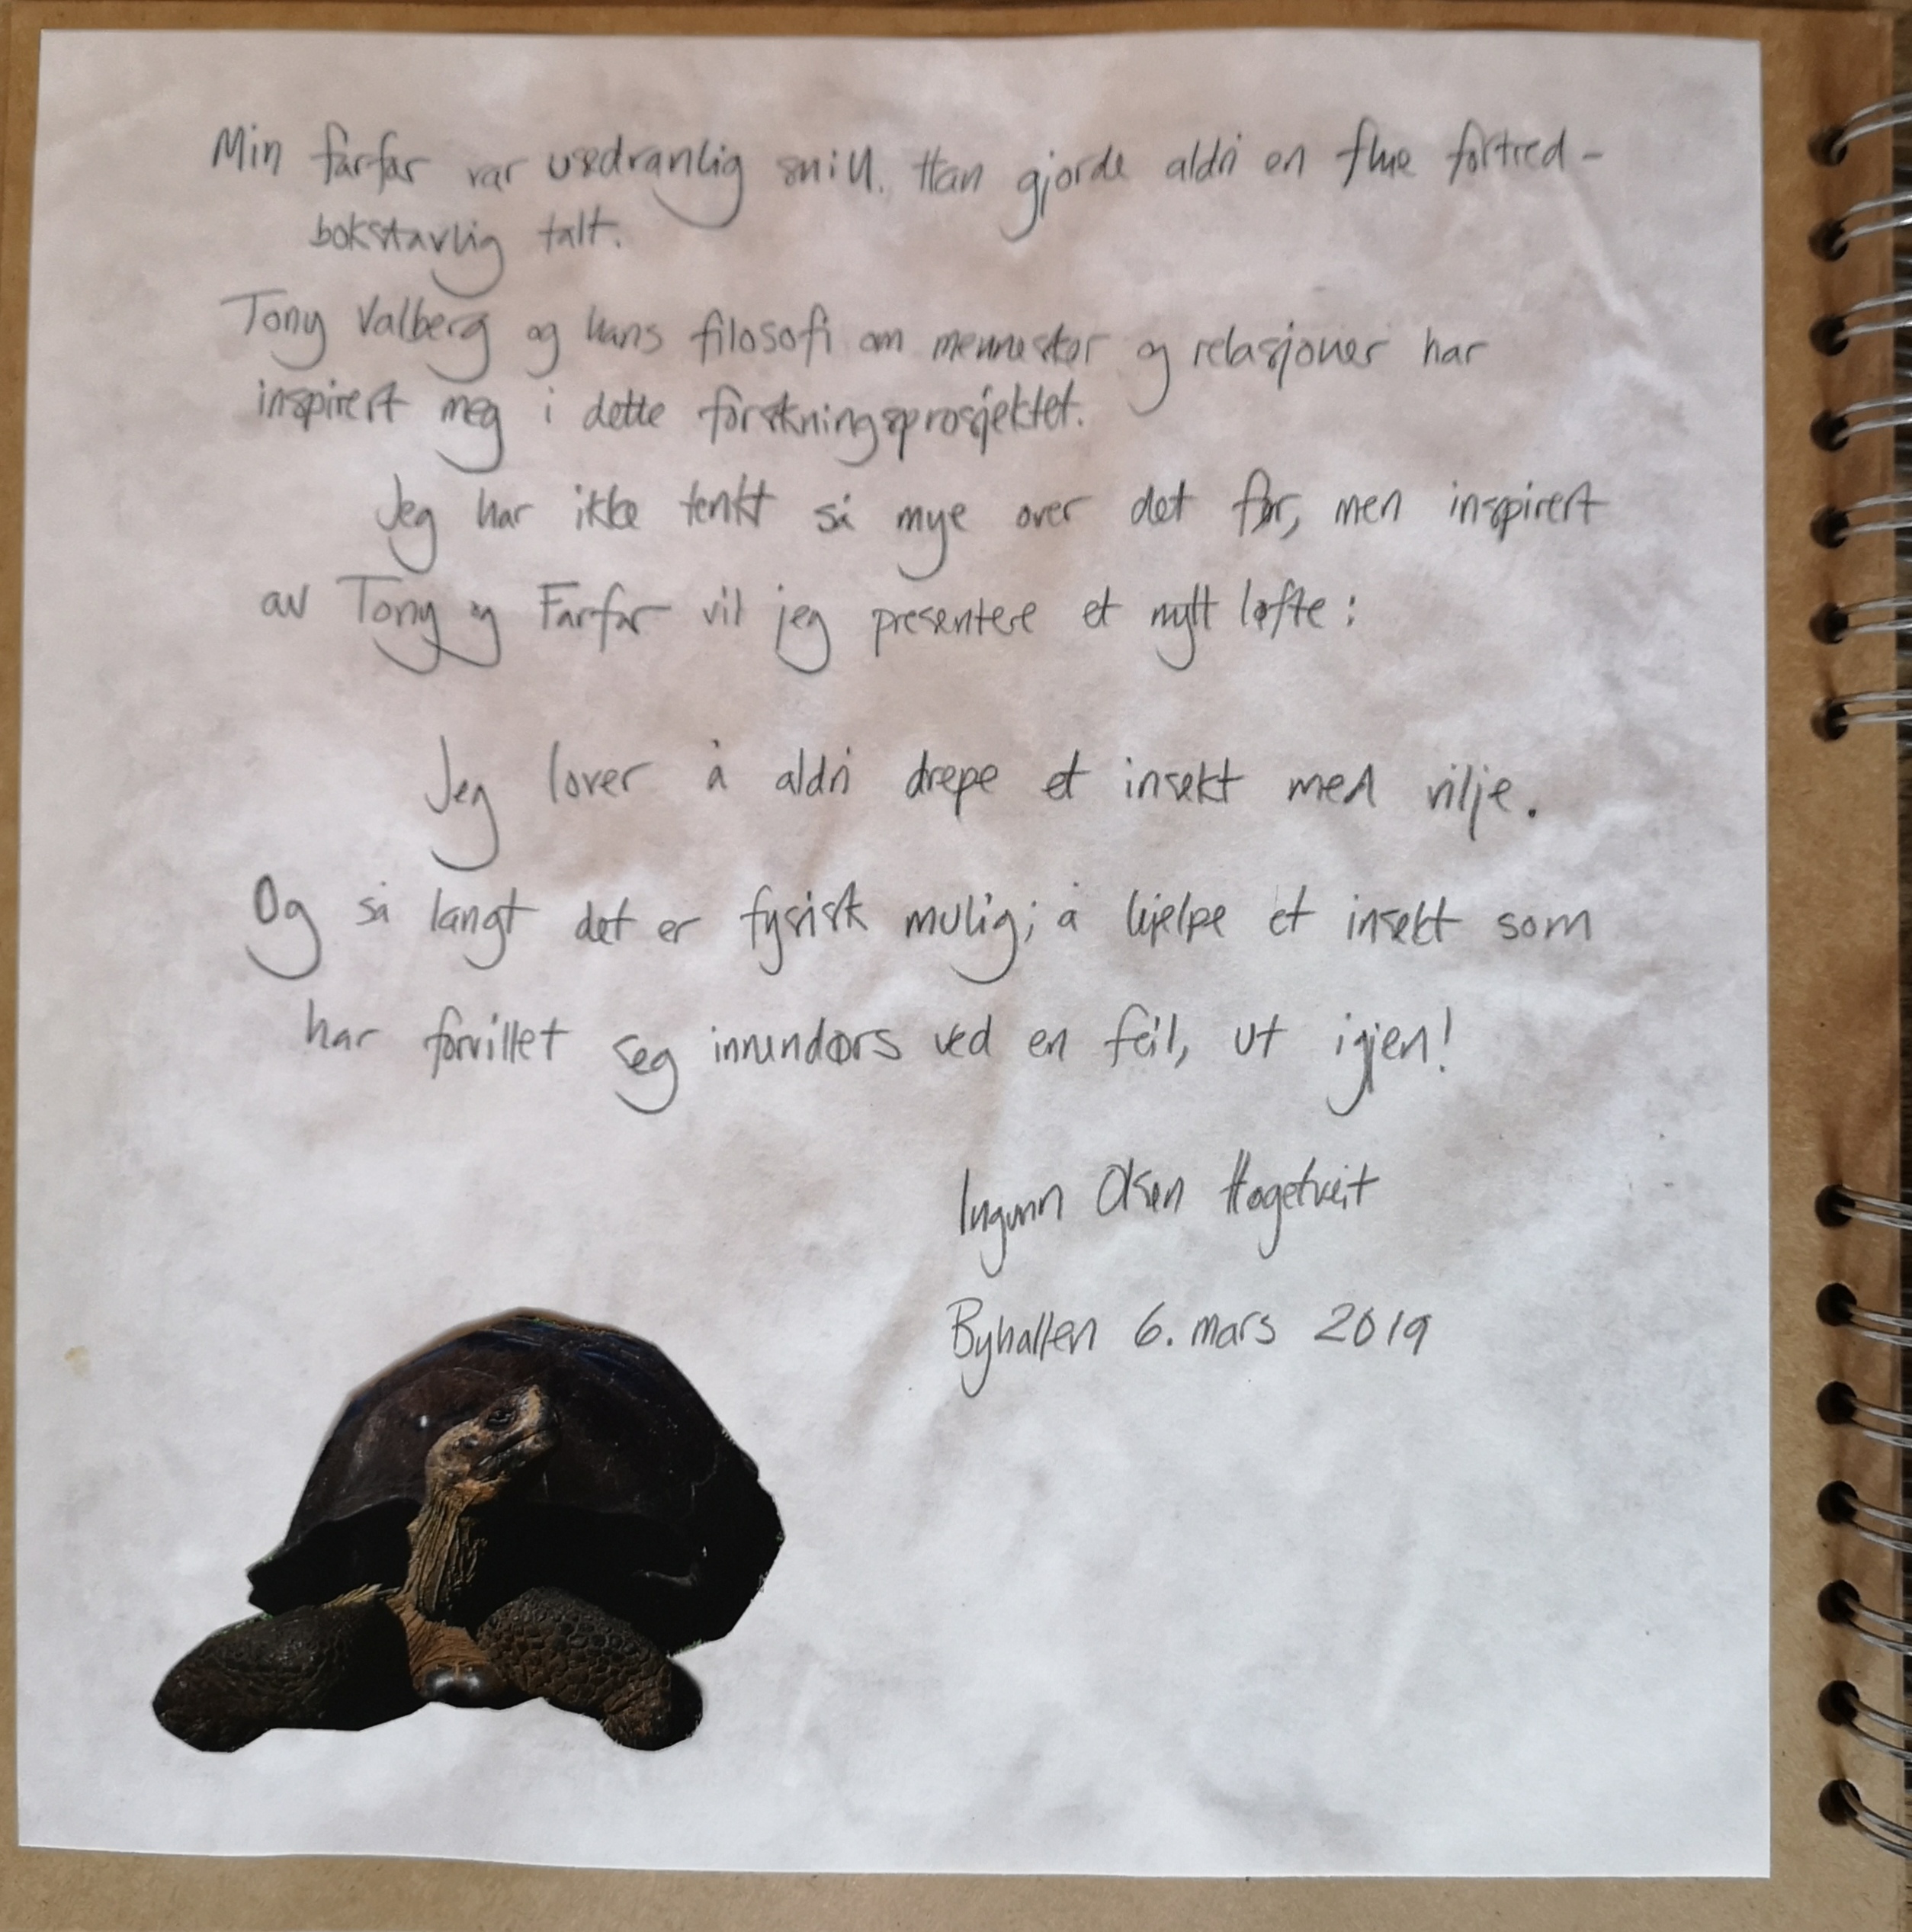 Min farfar var usedvanlig snill. Han gjorde aldri en flue fortred -
bokstavlig talt.
Tony Valberg og hans filosofi om mennesker og relasjoner har
inspirert meg i dette forskningsprosjektet.
Jeg har ikke tenkt så mye over det før, men inspirert
av Tony og Farfar vil jeg presentere et nytt løfte:
Jeg lover å aldri drepe et insekt med vilje.
Og så langt det er fysisk mulig; å hjelpe et insekt som
har forvillet seg innendørs ved en feil, ut igjen!
Ingunn Olsen Hagetveit
Byhallen 6. mars 2019